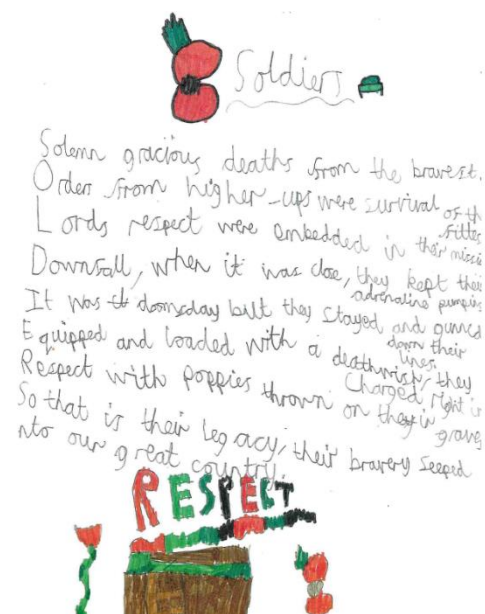 Soldiers
Solemn gracious deaths from the bravest.
Orders from higher-ups were survival of th
fittes
Lords respect were embedded in their missi
Downfall, when it was close, they kept thei
adrenaline pumping
It was domsday but they stayed and gunned
down their
lines.
Equipped and loaded with a deathwish, they
Charged right in
Respect with poppies thrown on their
graves
So that is their legacy, their bravery seeped
nto our great country.
RESPECT